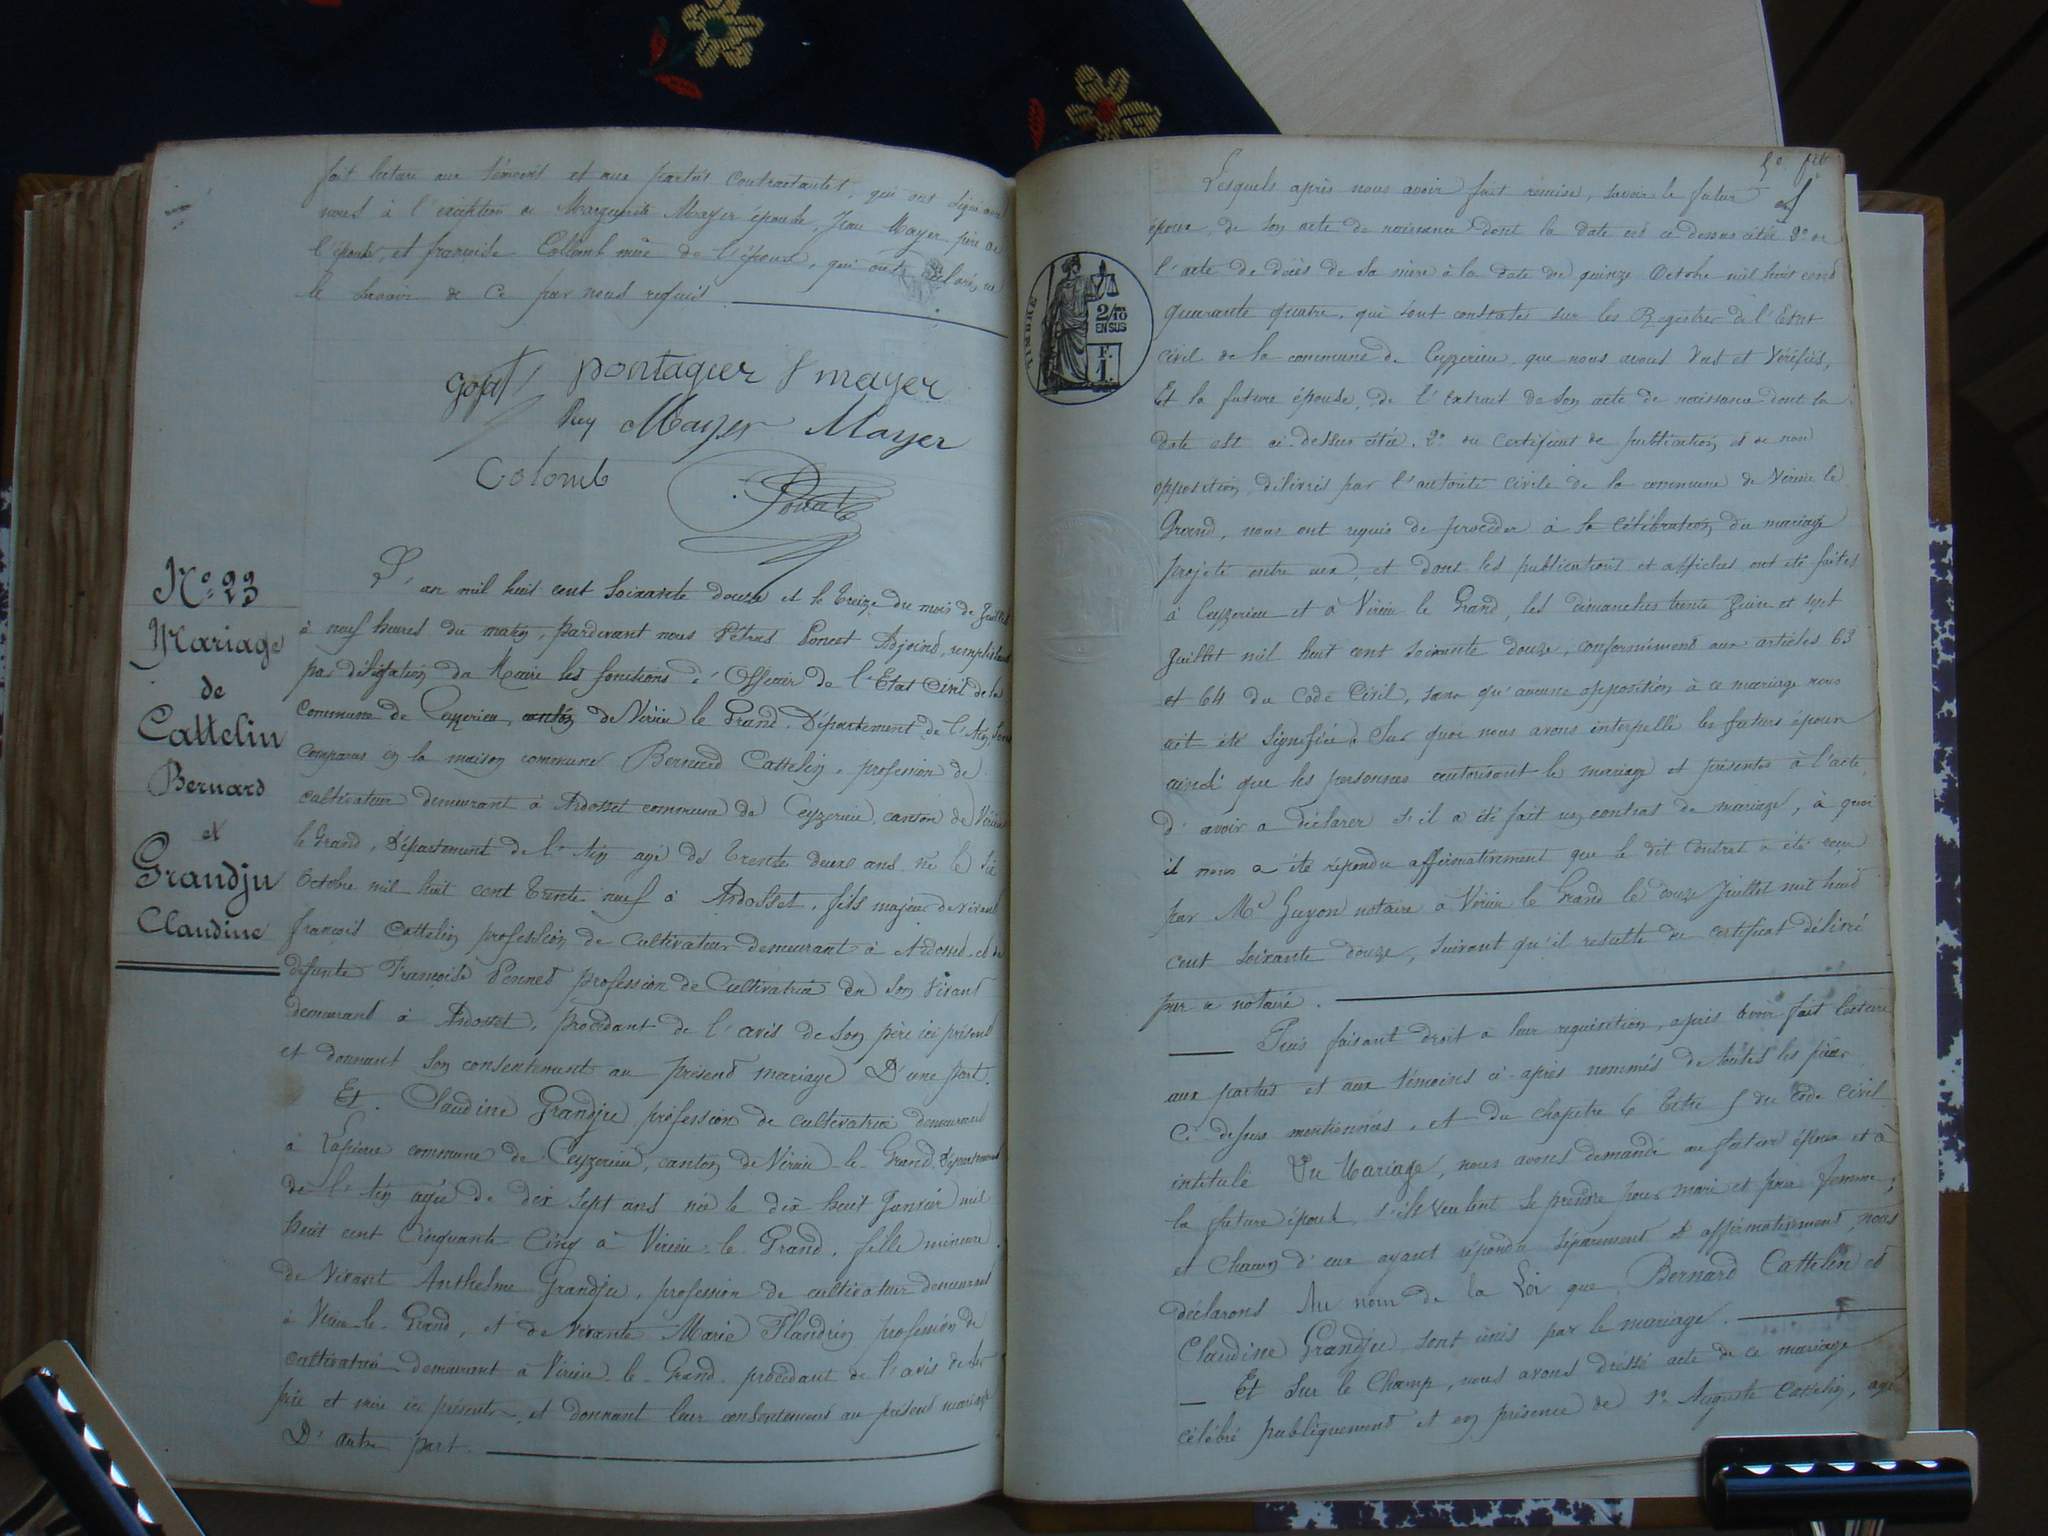 fait lecture aux témoins et aux parties contractantes, qui ont signé avec
nous à l'exception de Marguerite Mayer épouse, Jean Mayer père de
l'épouse, et françoise Collomb mère de l'époux, qui ont déclaré ne
le savoir de ce par nous requis.
pontaguer J mayer
Rey Mayer Mayer
Colomb
Poncet
N° 23
Mariage
de
Cattelin
Bernard
et
Grandju
Claudine
L'an mil huit cent soixante douze et le treize du mois de Juillet
à neuf heures du matin, pardevant nous Pétrus Poncet Adjoint, remplissant
par délégation du Maire les fonctions d'Officier de l'Etat Civil de la
Commune de Ceyzerieu, canton de Virieu le Grand, Département de l'Ain, sont
comparus en la maison commune Bernard Cattelin, profession de
cultivateur demeurant à Ardosset commune de Ceyzerieu, canton de Virieu
le Grand, Département de l'Ain agé de trente deux ans né le six
Octobre mil huit cent trente neuf à Ardosset, fils majeur de vivant
françois Cattelin profession de Cultivateur demeurant à Ardosset et de
défunte Françoise Ponnet profession de Cultivatrice en son vivant
demeurant à Ardosset, procédant de l'avis de son père ici présent
et donnant son consentement au présent mariage D'une part.
Et. Claudine Grandju, profession de cultivatrice demeurant
à Lapierre commune de Ceyzerieu, canton de Virieu-le-Grand, Département
de l'Ain agée de dix sept ans née le dix huit Janvier mil
huit cent cinquante cinq à Virieu-le-Grand, fille mineure
de vivant Anthelme Grandju, profession de cultivateur demeurant
à Virieu-le-Grand, et de vivante Marie Flandrin profession de
cultivatrice demeurant à Virieu-le-Grand procédant de l'avis de ses
père et mère ici présents, et donnant leur consentement au présent mariage
D'autre part.
TIMBRE
2/10
EN SUS
F.
1.
Lesquels après nous avoir fait remise, savoir le futur
époux, de son acte de naissance dont la date est ci dessus citée 2° de
l'acte de décès de sa mère à la date du quinze Octobre mil huit cent
quarante quatre, qui sont constatés sur les Registres de l'Etat
civil de la commune de Ceyzerieu, que nous avons vus et vérifiés,
Et la future épouse, de l'extrait de son acte de naissance dont la
date est ci-dessus citée. 2° du certificat de publication et de non
opposition délivrés par l'autorité civile de la commune de Virieu le
Grand, nous ont requis de procéder à la célébration du mariage
projeté entre eux, et dont les publications et affiches ont été faites
à Ceyzerieu et à Virieu le Grand, les dimanches trente Juin et sept
Juillet mil huit cent soixante douze, conformément aux articles 63
et 64 du Code Civil, sans qu'aucune opposition à ce mariage nous
ait été signifiée. Sur quoi nous avons interpellé les futurs époux
ainsi que les personnes autorisant le mariage et présentes à l'acte
d'avoir a déclarer s'il a été fait un contrat de mariage, à quoi
il nous a été répondu affirmativement que le dit contrat a été reçu
par Me Guyon notaire à Virieu le Grand le douze Juillet mil huit
cent soixante douze, suivant qu'il resulte du certificat délivré
par ce notaire.
Puis faisant droit a leur requisition, après avoir fait lecture
aux parties et aux témoins ci-après nommés de toutes les pièces
Ci dessus mentionnées, et du chapitre 6 titre 5 du Code Civil
intitulé Du Mariage, nous avons demandé au futur époux et à
la future épouse s'ils veulent se prendre pour mari et pour femme;
et chacun d'eux ayant répondu séparement et affirmativement, nous
déclarons Au nom de la Loi que Bernard Cattelin et
Claudine Grandju sont unis par le mariage.
Et sur le Champ, nous avons dressé acte de ce mariage
célébré publiquement et en présence de 1° Auguste Cattelin, agé